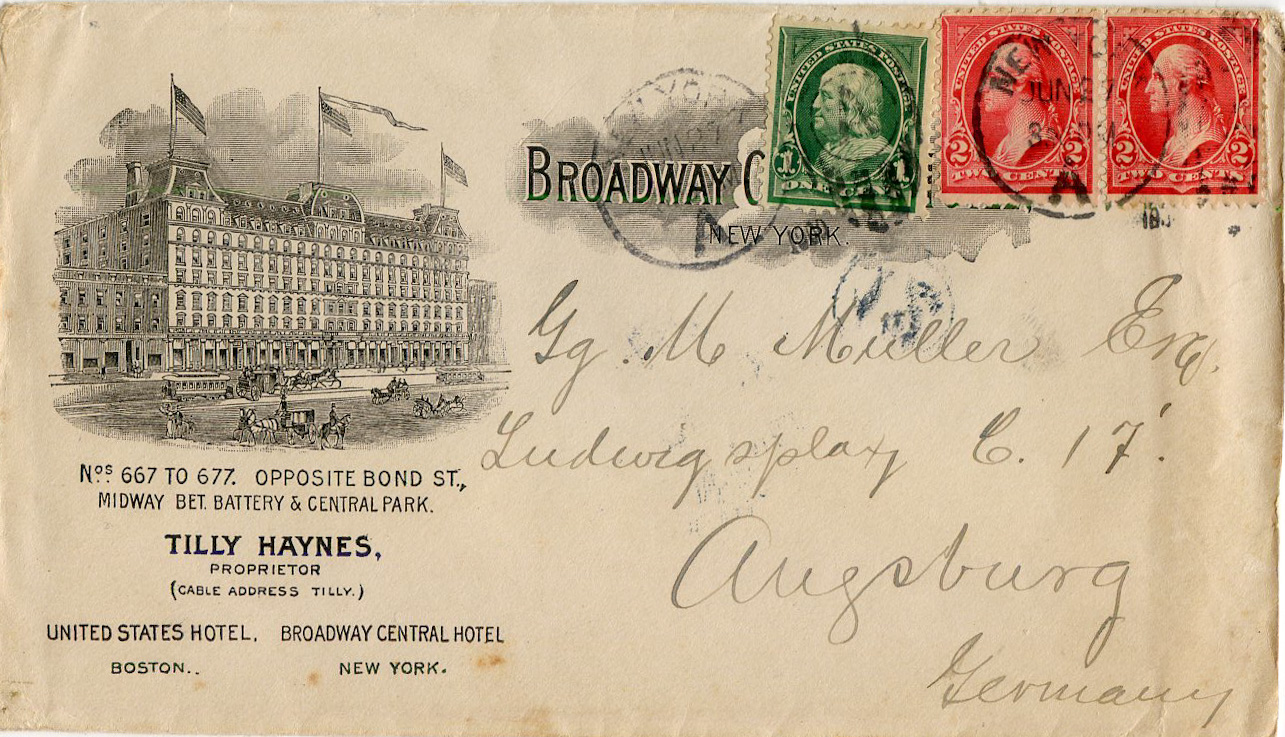 BROADWAY C
NEW YORK.
UNITED STATES POSTAGE
1 1
ONE CENT
UNITED STATES POSTAGE
2 2
TWO CENTS
UNITED STATES POSTAGE
2 2
TWO CENTS
NEW
JUN 27
A
JUN 27
A
Gg. M Muller Esq.
Ludwigsplatz C. 17.
Augsburg
Germany
Nos. 667 TO 677. OPPOSITE BOND ST.,
MIDWAY BET. BATTERY & CENTRAL PARK.
TILLY HAYNES,
PROPRIETOR
(CABLE ADDRESS TILLY.)
UNITED STATES HOTEL, BROADWAY CENTRAL HOTEL
BOSTON.. NEW YORK.